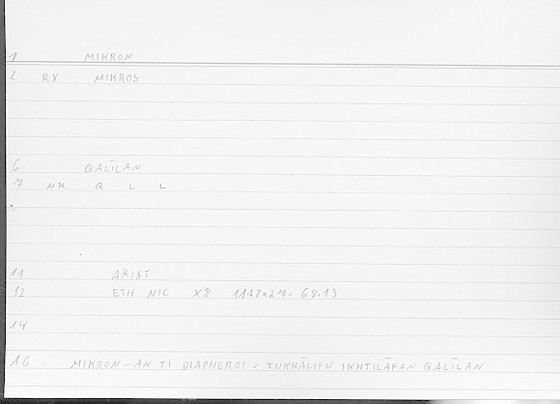 1 MIKRON
2 RX MIKROS
6 QALĪLAN
7 NK Q L L
11 ARIST
12 ETH NIC X8 1178a27= 68.13
14
16 MIKRON–AN TI DIAPHEROI = TUKHĀLIFU IKHTILĀFAN QALĪLAN